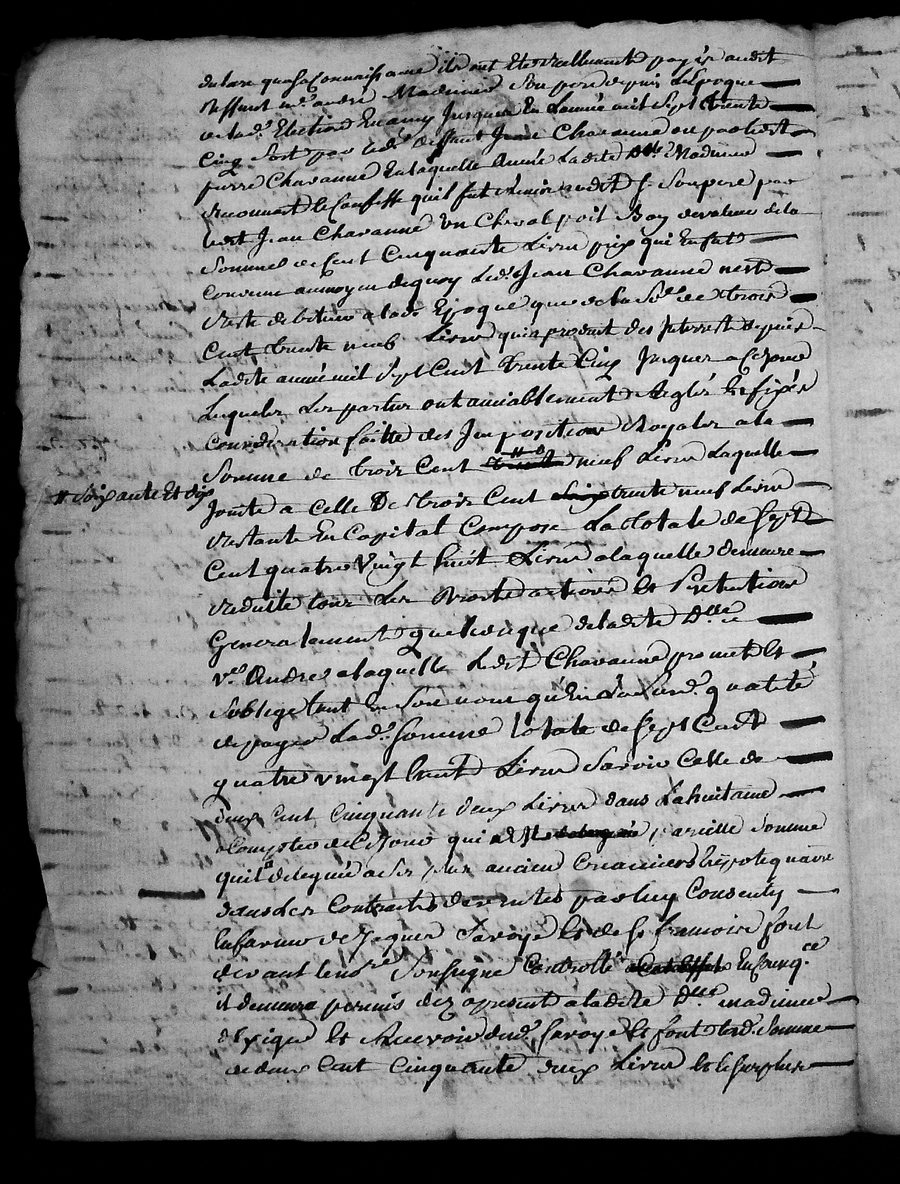 qu'a sa Connaissance ils ont été reellement payés audit
deffunt me. andré Madinier Son pere depuis L'Epoque
de lade. Election En amy Jusques En L'année mil Sept Cent trente
Cinq Soit par ledt. deffunt Jean Chavanne ou par ledit
pierre Chavanne En laquelle Année Ladite Dlle. Madinier
reconnait Et Confesse qu'il fut remis audit Sr. Son pere par
ledit Jean Chavanne un Cheval poil Bay de valeur de la
Somme de Cent Cinquante Livres prix qui En fut
Convenu au moyen de quoy Ledt. Jean Chavanne n'est
resté debiteur a lade. Epoque que de la So.e de trois
Cent trente neuf Livres qui a produit des Interest depuis
Ladite année mil Sept Cent Trente Cinq Jusques a Ce Jour
Lesquels Les parties ont amiablement Reglés Et fixés
Consideration faitte des Impositions Royales a la
Somme de trois Cent neuf Livres Laquelle
# Soixante Et dix
Jointe a Celle De trois Cent trente neuf Livres
restante En Capital Compose La totale de Sept
Cent quatre Vingt huit Livres a laquelle demeure
reduitte tous Les Droits actions Et Pretentions
Generalement quelconque de ladite Dlle.
Ve. Andre a laquelle Ledit Chavanne promet Et
S'oblige tant En Son nom qu'En qualité
de payer Lade. Somme totale de Sept Cent
quatre vingt huit Livres Savoir Celle de
deux Cent Cinquante deux Livres dans La huitaine
a Compter de Ce Jour qui Est pareille Somme
qu'il a deleguée a Ses plus anciens Creanciers hypotequaire
dans des Contracts de ventes par luy Consenty
En faveur de Jacques Savoye Et de font
devant le nore. Soussigné Controllé En Conseqce.
il demeure permis dez apresent a ladite Dlle. madinier
d'Exiger Et Recevoir dudt. Savoye Et font lade. Somme
de deux Cent Cinquante deux Livres Et le Surplus